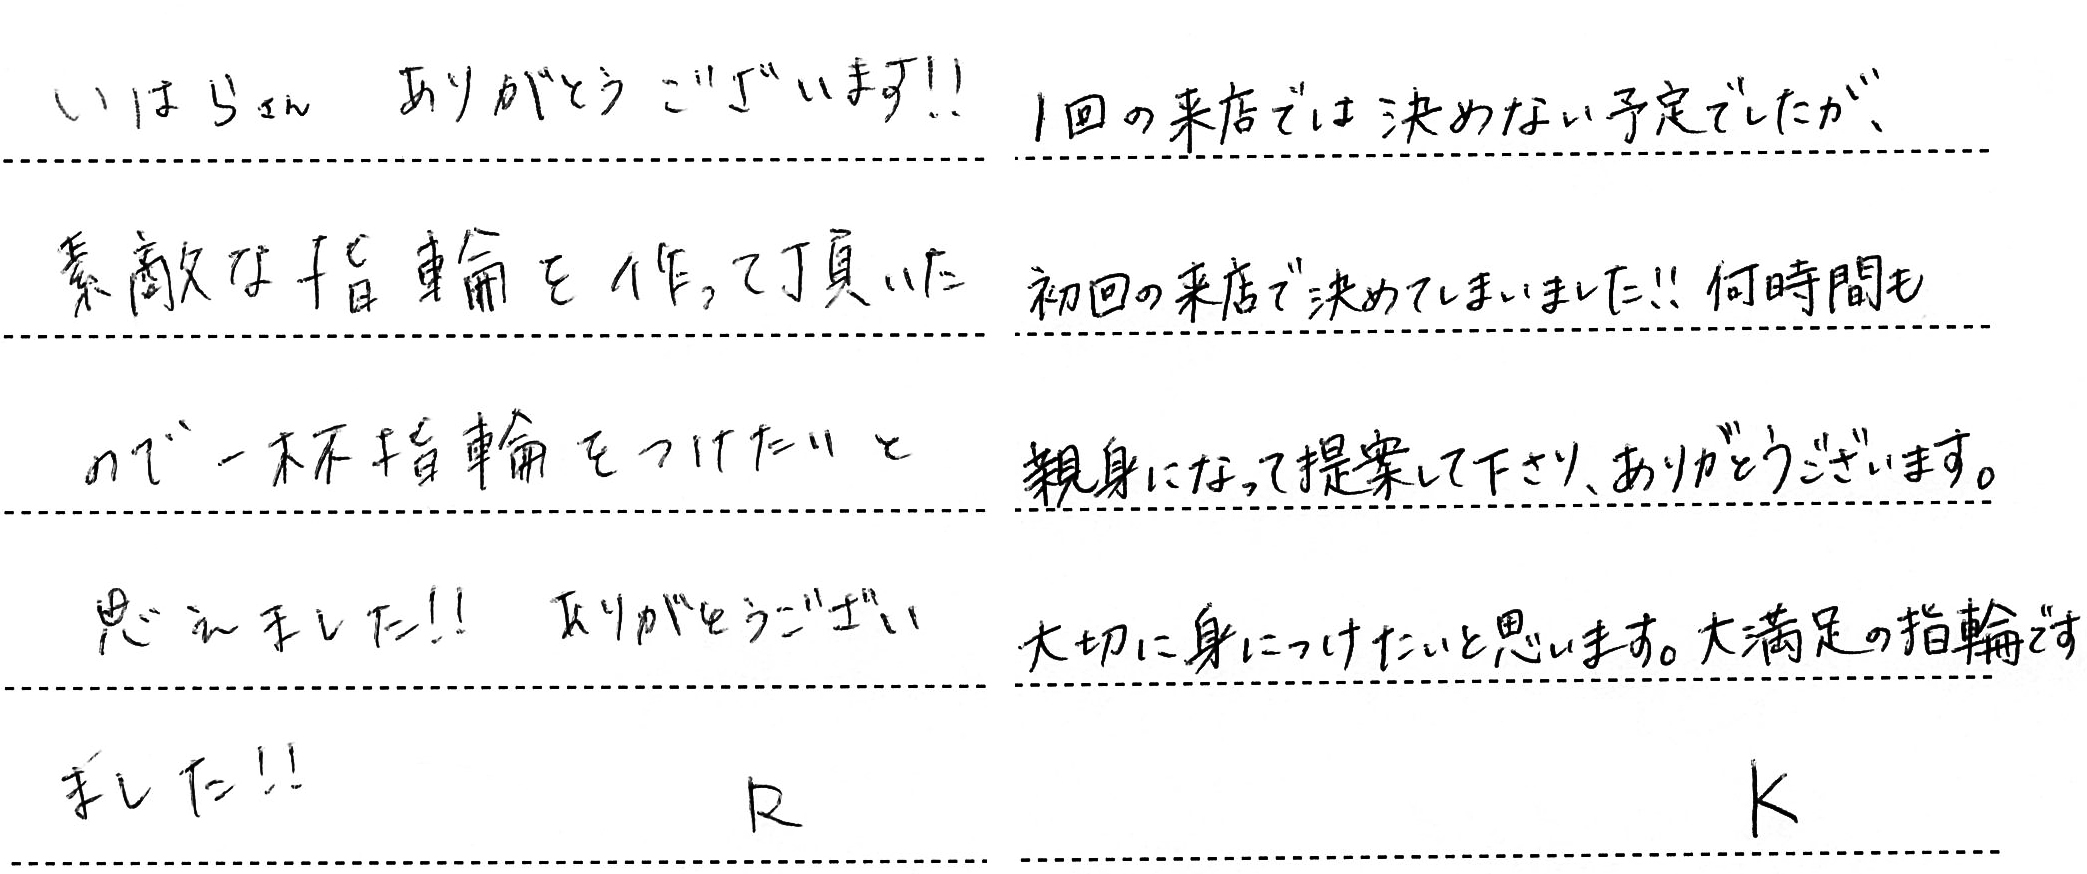 いはらさん ありがとうございます!!
素敵な指輪を作って頂いた
ので一杯指輪をつけたいと
思えました!! ありがとうござい
ました!!
R
1回の来店では決めない予定でしたが、
初回の来店で決めてしまいました!! 何時間も
親身になって提案して下さり、ありがとうございます。
大切に身につけたいと思います。大満足の指輪です
K